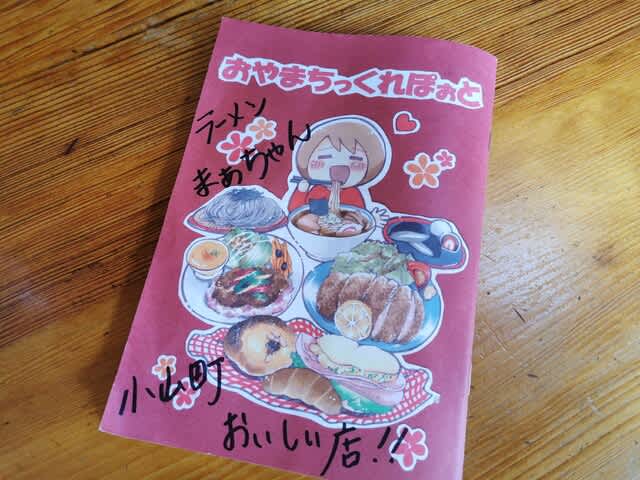 おやまちっくれぽぉと
ラーメン
まぁちゃん
小山町
おいしい店!!